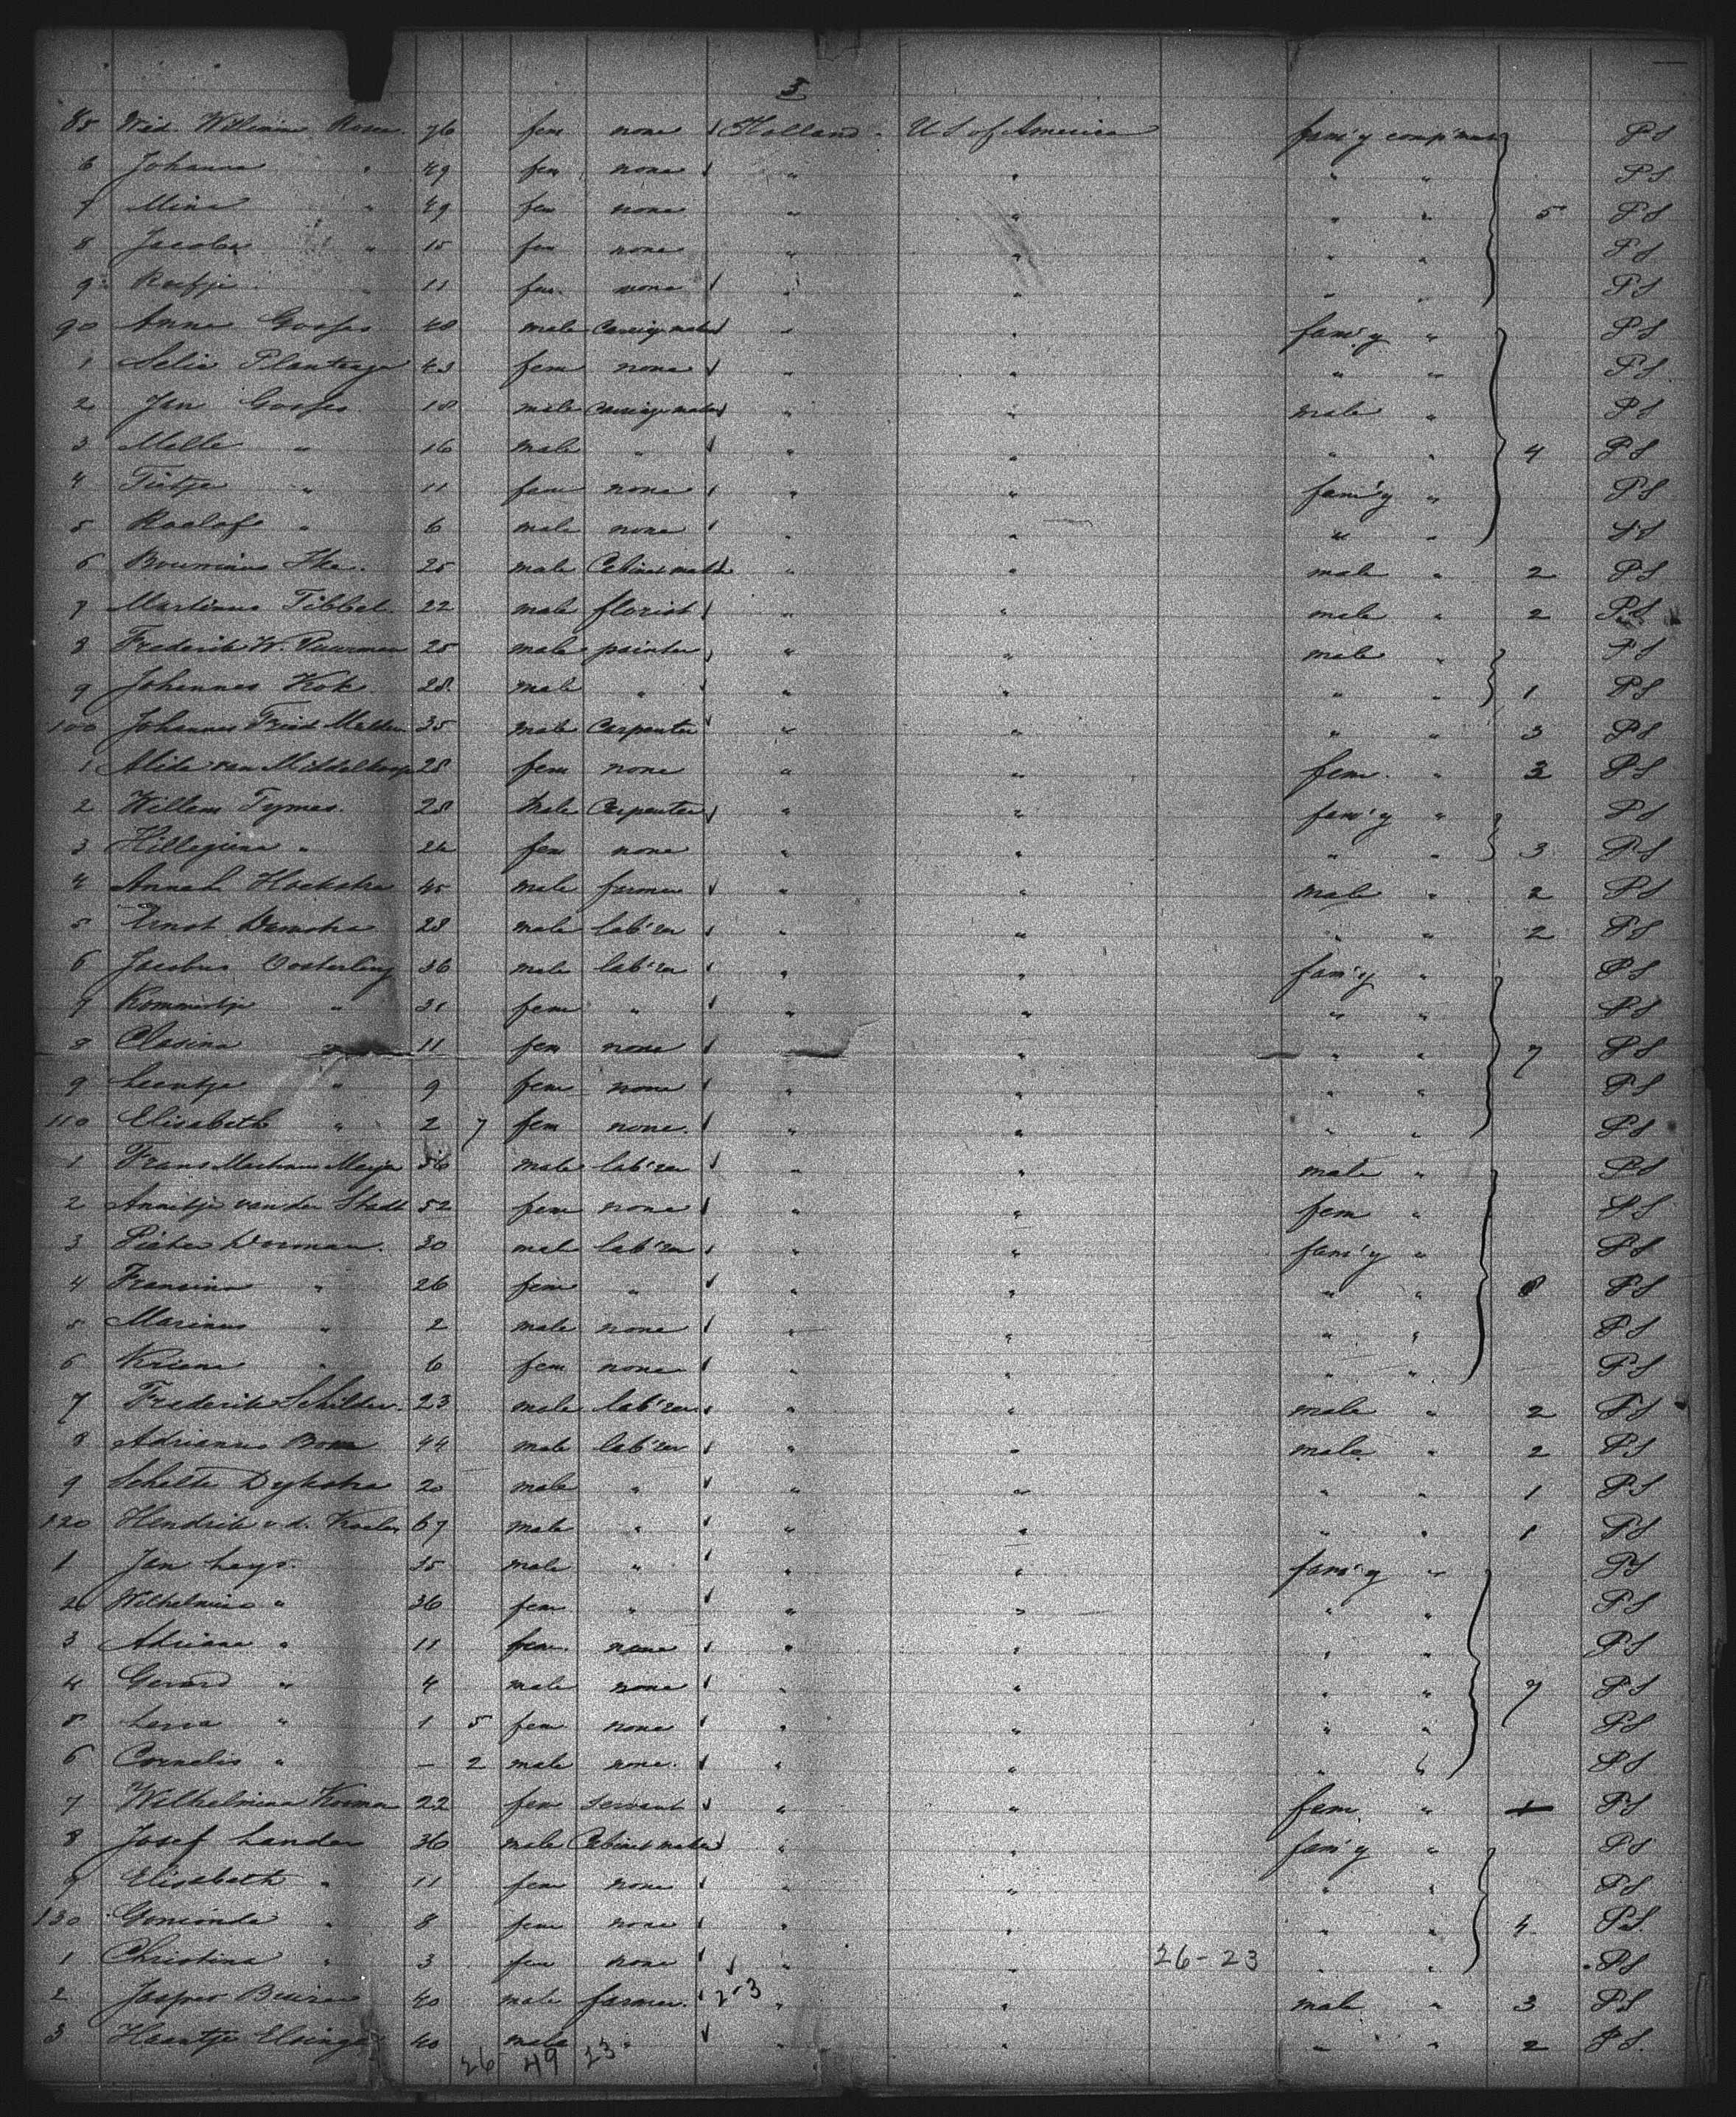 3
85 Wid. Willemina Rosen 76 fem none Holland U S of America fam'y comp'ment PS
6 Johanna " 49 fem none " " " " PS
7 Mina " 49 fem none " " " " 5 PS
8 Jacoba " 15 fem none " " " " PS
9 " 11 fem none " " " " PS
90 Anne Gosses 48 male Carriage maker " " fam'y " PS
1 Selia Plantinga 43 fem none " " " " PS
2 Jan Gosses 18 male Carriage maker " " male " PS
3 Melle " 16 male " " " " " 4 PS
4 Tietje " 11 fem none " " fam'y " PS
5 Roelof " 6 male none " " " " PS
6 25 male Cabinet maker " " male " 2 PS
7 Martinus Tibbel 22 male florist " " male " 2 PS
8 Frederik W. Puurman 25 male painter " " male " PS
9 Johannes Kok 28 male " " " " " 1 PS
100 Johannes Fried 35 male Carpenter " " " " 3 PS
1 Alida van Middelkoop 28 fem none " " fem " 3 PS
2 Willem Tymes 28 male Carpenter " " fam'y " PS
3 Hillegiena " 26 fem none " " " " 3 PS
4 Hoekstra 45 male farmer " " male " 2 PS
5 Ernst Damstra 28 male lab'rer " " " " 2 PS
6 Jacobus Oosterling 36 male lab'rer " " fam'y " PS
7 Kommertje " 31 fem " " " " " PS
8 Clasina " 11 fem none " " " " 7 PS
9 Leentje " 9 fem none " " " " PS
110 Elisabeth " 2 7 fem none " " " " PS
1 Frans 56 male lab'rer " " male " PS
2 Annitje van der Stadt 52 fem none " " fem " PS
3 Pieter Dorman 30 male lab'rer " " fam'y " PS
4 Fransina " 26 fem " " " " " 8 PS
5 Marinus " 2 male none " " " " PS
6 Kriena " 6 fem none " " " " PS
7 Frederik Schilder 23 male lab'rer " " male " 2 PS
8 Adrianus Bom 44 male lab'rer " " male " 2 PS
9 Schelte Dykstra 20 male " " " " " 1 PS
120 Hendrik v. d. 67 male " " " " " 1 PS
1 Jan Leys 35 male " " " fam'y " PS
2 Wilhelmina " 36 fem " " " " " PS
3 Adriana " 11 fem none " " " " PS
4 Gerard " 4 male none " " " " 7 PS
5 " 1 5 fem none " " " " PS
6 Cornelis " — 2 male none " " " " PS
7 Wilhelmina 22 fem servant " " fem " 1 PS
8 Josef Lander 36 male Cabinet maker " " fam'y " PS
9 Elisabeth " 11 fem none " " " " PS
130 " 8 fem none " " " " 4 PS
1 Christina " 3 fem none " " 26-23 " " PS
2 Jasper 40 male farmer 2-3 " " male " 3 PS
3 Haantje Elzinga 40 male " " " " " 2 PS
26 49 23